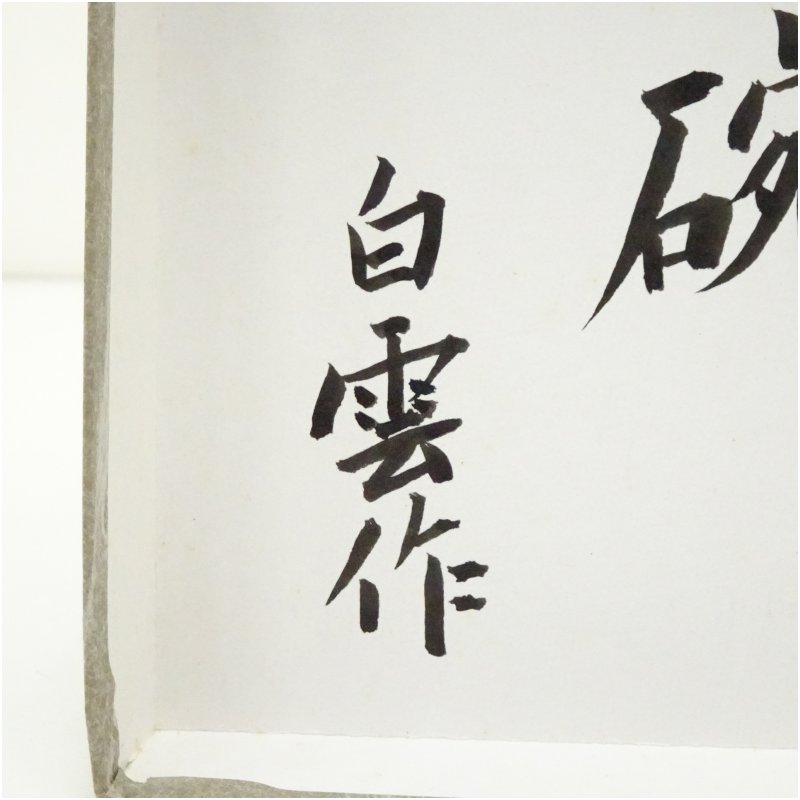 碗
白雲作